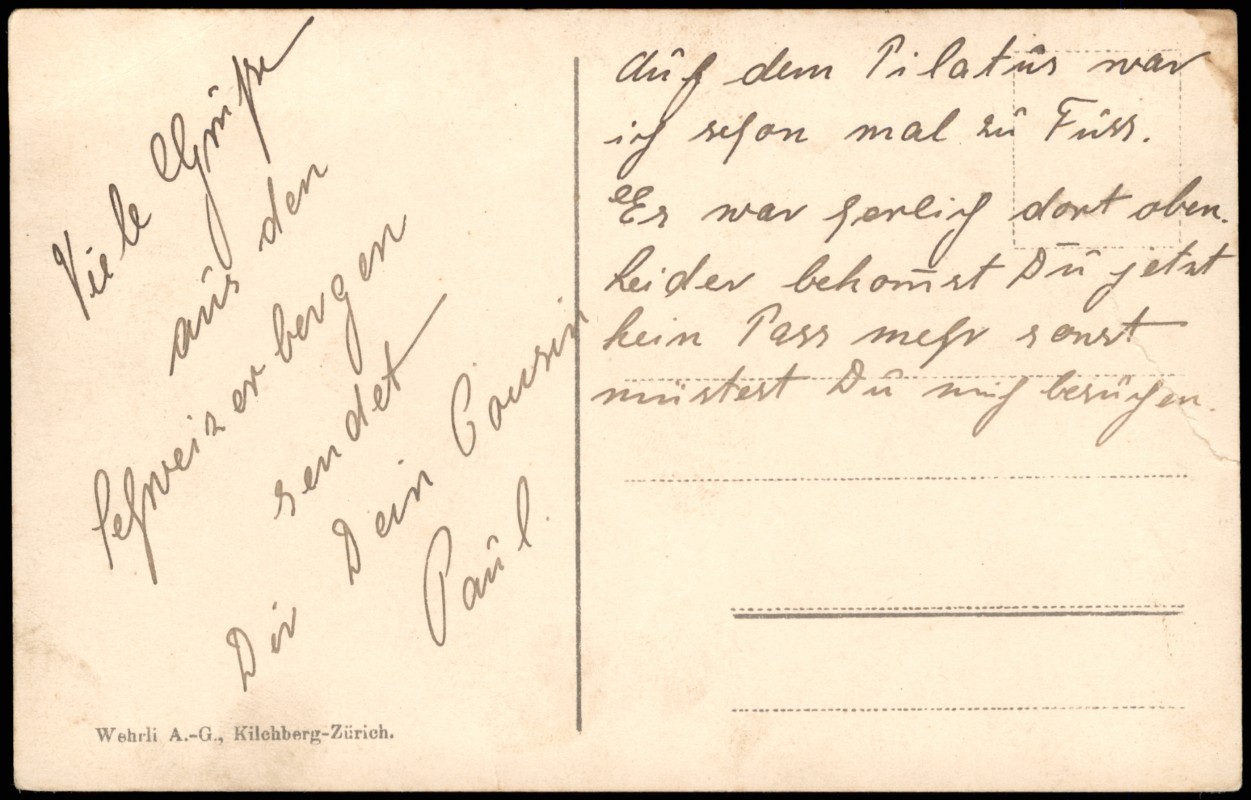 Viele Grüße
aus den
Schweizer bergen
sendet
Dir Dein Cousin
Paul.
Wehrli A.-G., Kilchberg-Zürich.
Auf dem Pilatus war
ich schon mal zu Fuss.
Es war herlich dort oben.
Leider bekom̅st Du jetzt
kein Pass mehr sonst
müstest Du mich besuchen.